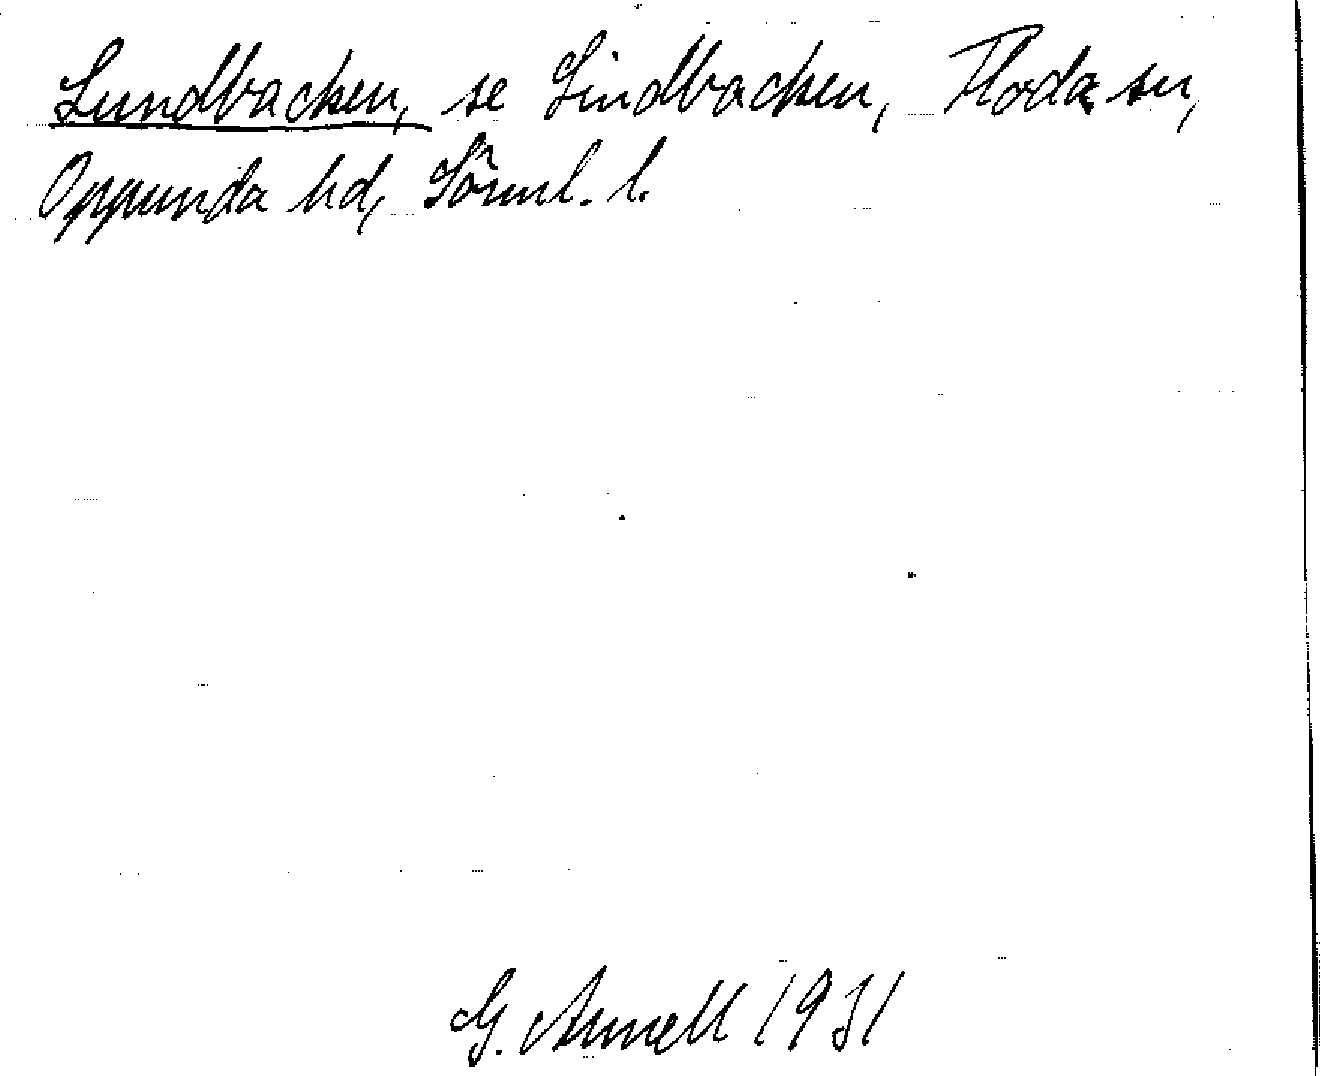 Lundbacken, se Lindbacken, Floda sn,
Oppunda hd, Sörml. l.
G. Arnell 1931